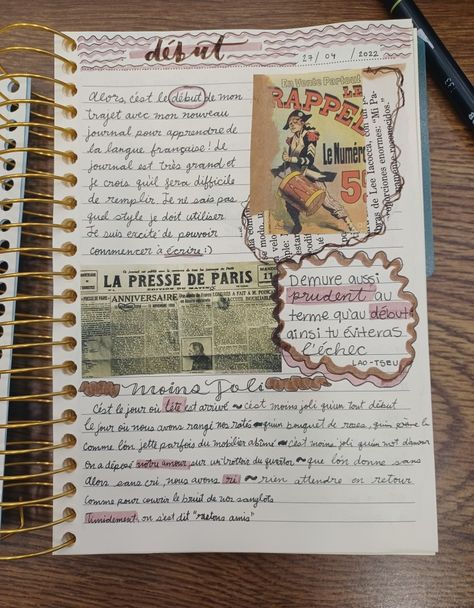 début
27 / 04 / 2022
Alors, c'est le début de mon
trajet avec mon nouveau
journal pour apprendre de
la langue française! Le
journal est très grand et
je crois qu'il sera difficile
de remplir. Je ne sais pas
quel style je doit utiliser.
Je suis excité de pouvoir
commencer à écrire :)
En Vente Partout
LE
RAPPEL
Le Numéro
5
bras de Lee Iacocca, con un
porciones enormes: "Mi Pa-
LA PRESSE DE PARIS
ANNIVERSAIRE
Demure aussi
prudent au
terme qu'au début
ainsi tu éviteras
l'échec
LAO-TSEU
moins joli
C'est le jour où l'été est arrivé ~ c'est moins joli qu'un tout début
le jour où nous avons rangé nos rôles ~ qu'un bouquet de roses, qu'un
Comme l'on jette parfois du mobilier abîmé ~ c'est moins joli qu'un mot d'amour
On a déposé notre amour sur un trottoir du quartier ~ que l'on donne sans
Alors sans cri, nous avons ri ~ rien attendre en retour
Comme pour couvrir le bruit de nos sanglots
Timidement, on s'est dit "restons amis"